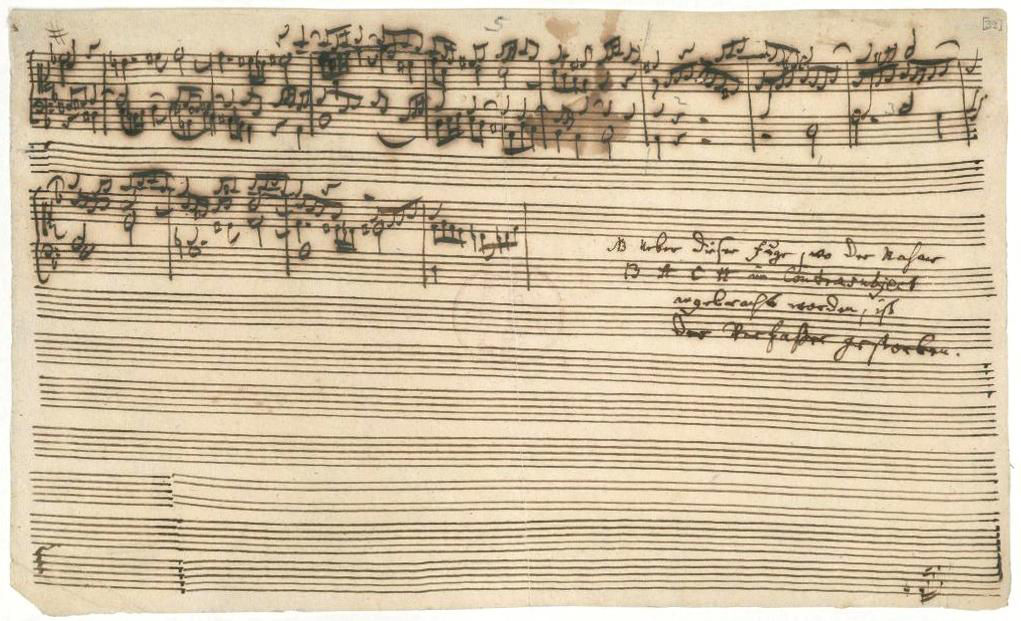 5
[32]
NB Ueber dieser Fuge, wo der Nahme
B A C H im Contrasubject
angebracht worden, ist
der Verfaßer gestorben.